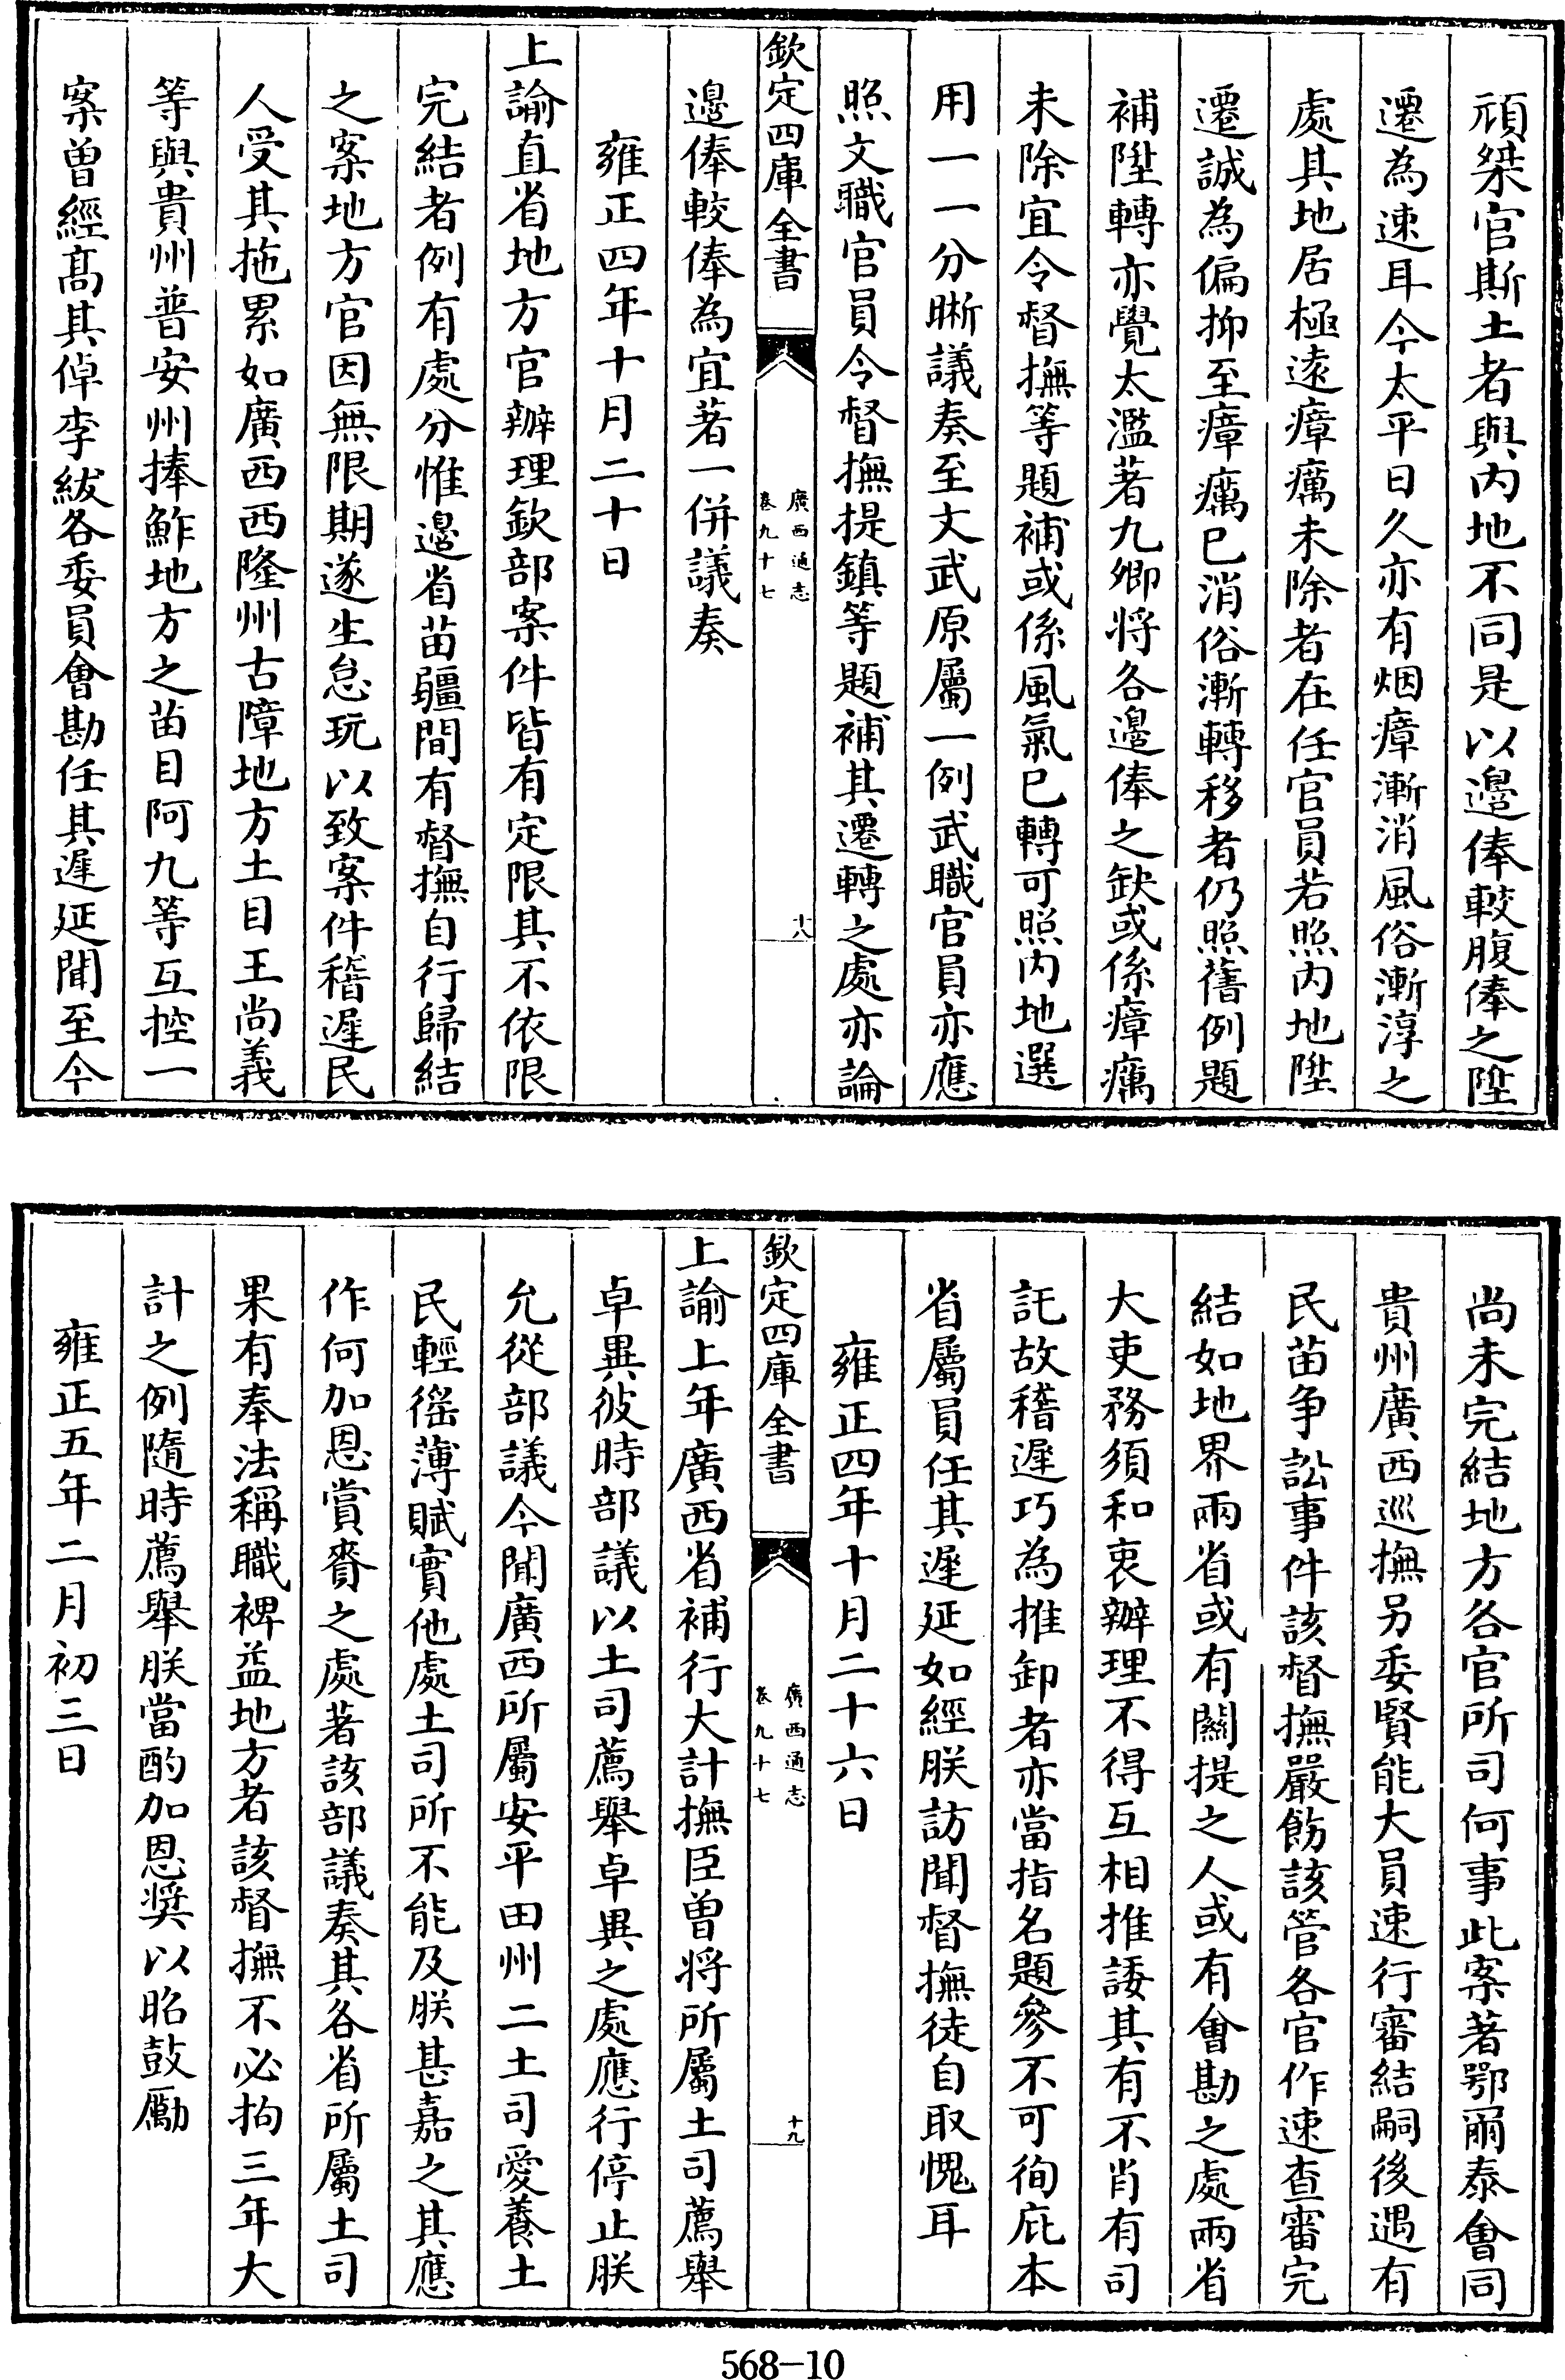 頑桀官斯土者與内地不同是以邉俸較腹俸之陞
遷為速耳今太平日久亦有烟瘴漸消風俗漸淳之
處其地居極逺瘴癘未除者在任官員若照内地陞
遷誠為偏抑至瘴癘已消俗漸轉移者仍照舊例題
補陞轉亦覺太濫著九卿将各邉俸之缺或係瘴癘
未除宜令督撫等題補或係風氣已轉可照内地選
用一一分晰議奏至文武原屬一例武職官員亦應
照文職官員令督撫提鎮等題補其遷轉之處亦論
欽定四庫全書
廣西通志
卷九十七
十八
邉俸較俸為宜著一併議奏
雍正四年十月二十日
上諭直省地方官辦理欽部案件皆有定限其不依限
完結者例有處分惟邉省苗疆間有督撫自行歸結
之案地方官因無限期遂生怠玩以致案件稽遲民
人受其拖累如廣西西隆州古障地方土目王尚義
等與貴州普安州捧鮓地方之苗目阿九等互控一
案曽經髙其倬李紱各委員會勘任其遲延聞至今
尚未完結地方各官所司何事此案著鄂爾泰會同
貴州廣西巡撫另委賢能大員速行審結嗣後遇有
民苗争訟事件該督撫嚴飭該管各官作速查審完
結如地界兩省或有關提之人或有會勘之處兩省
大吏務須和衷辦理不得互相推諉其有不肖有司
託故稽遲巧為推卸者亦當指名題參不可徇庇本
省屬員任其遲延如經朕訪聞督撫徒自取愧耳
雍正四年十月二十六日
欽定四庫全書
廣西通志
卷九十七
十九
上諭上年廣西省補行大計撫臣曽将所屬土司薦舉
卓異彼時部議以土司薦舉卓異之處應行停止朕
允從部議今聞廣西所屬安平田州二土司愛養土
民輕徭薄賦實他處土司所不能及朕甚嘉之其應
作何加恩賞賚之處著該部議奏其各省所屬土司
果有奉法稱職裨益地方者該督撫不必拘三年大
計之例隨時薦舉朕當酌加恩奬以昭鼓勵
雍正五年二月初三日
568-10